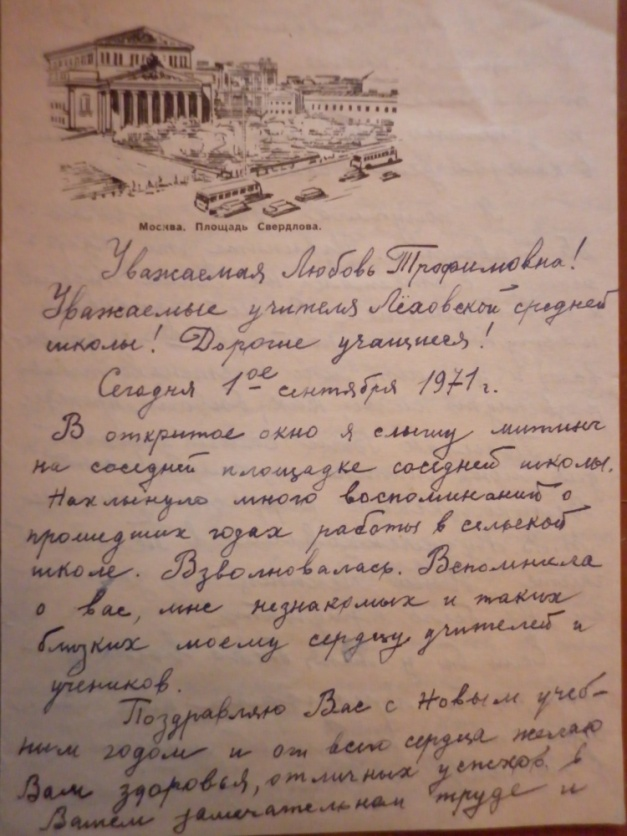 Москва. Площадь Свердлова.
Уважаемая Любовь Трофимовна!
Уважаемые учителя Лёховской средней
школы! Дорогие учащиеся!
Сегодня 1ое сентября 1971 г.
В открытое окно я слышу митинг
на соседней площадке соседней школы.
Нахлынуло много воспоминаний о
прошедших годах работы в сельской
школе. Взволновалась. Вспомнила
о вас, мне незнакомых и таких
близких моему сердцу учителей и
учеников.
Поздравляю Вас с Новым учеб-
ным годом и от всего сердца желаю
Вам здоровья, отличных успехов в
Вашем замечательном труде и